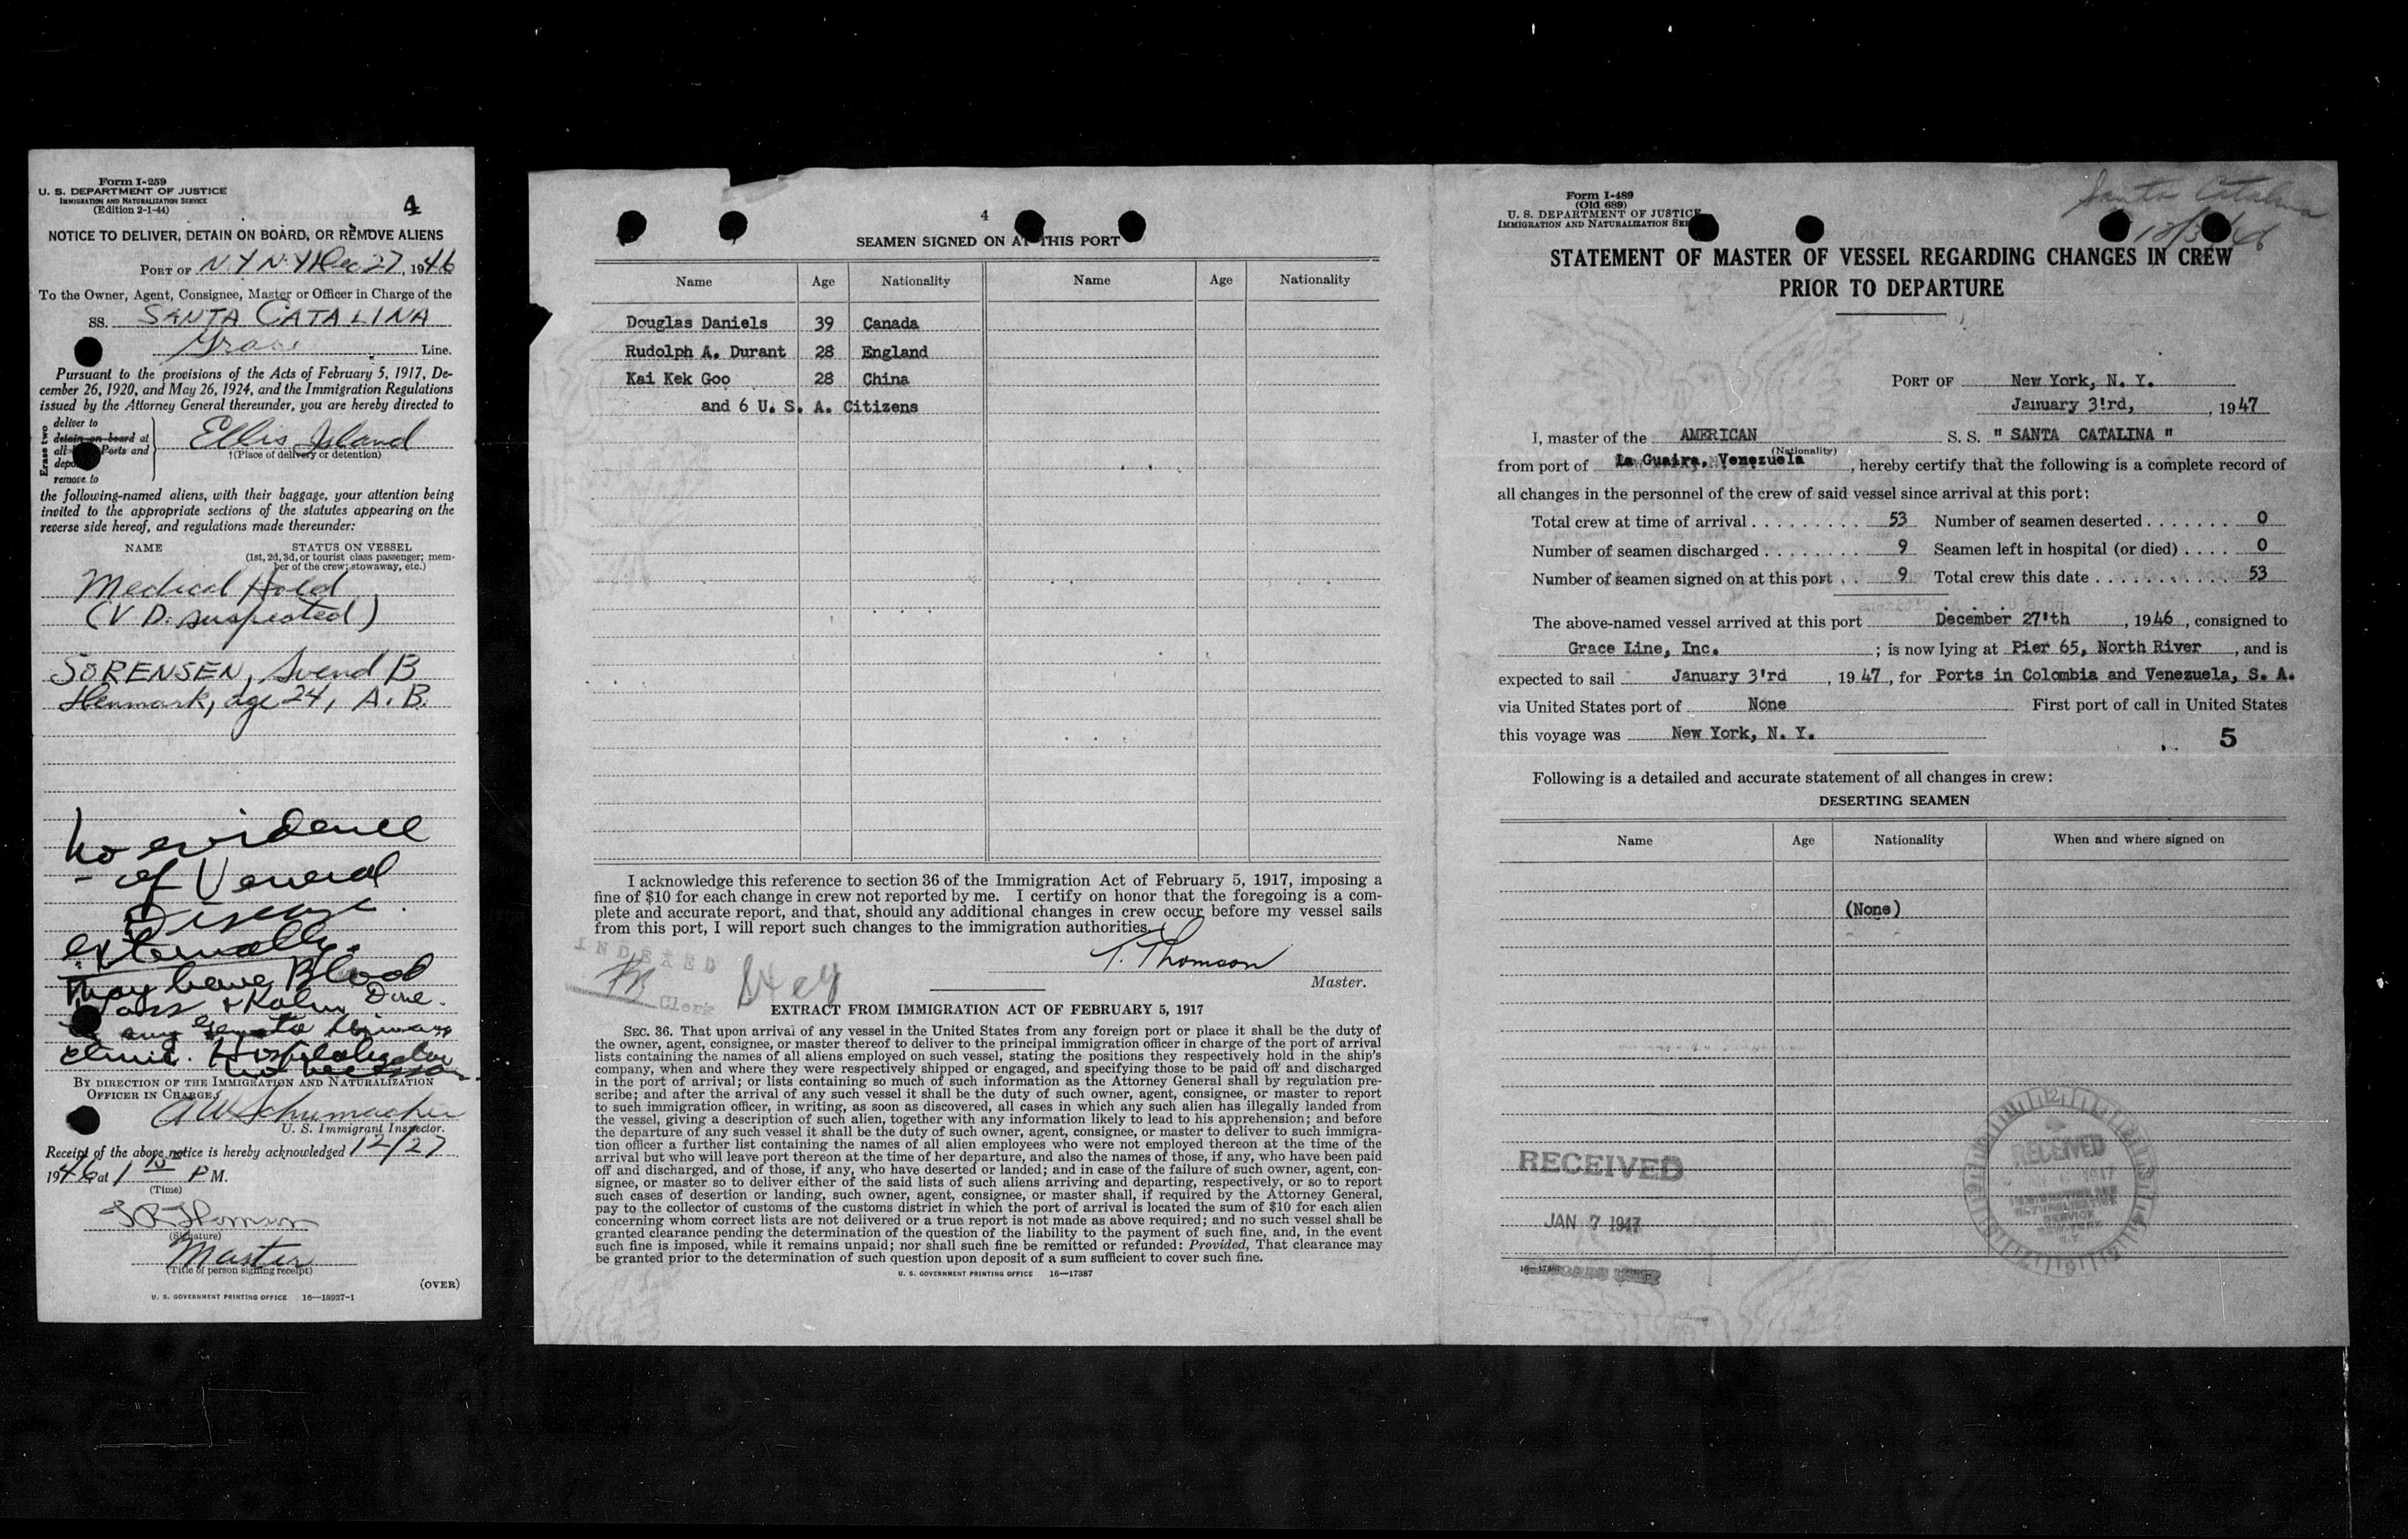 Form I-259
U. S. DEPARTMENT OF JUSTICE
IMMIGRATION AND NATURALIZATION SERVICE
(Edition 2-1-44)
4
NOTICE TO DELIVER, DETAIN ON BOARD, OR REMOVE ALIENS
PORT OF N Y N. Y Dec 27, 1946
To the Owner, Agent, Consignee, Master or Officer in Charge of the
SS. SANTA CATALINA
Grace Line.
Pursuant to the provisions of the Acts of February 5, 1917, De-
cember 26, 1920, and May 26, 1924, and the Immigration Regulations
issued by the Attorney General thereunder, you are hereby directed to
Erase two
deliver to
detain on board at
all Ports and
remove to
Ellis Island
†(Place of delivery or detention)
the following-named aliens, with their baggage, your attention being
invited to the appropriate sections of the statutes appearing on the
reverse side hereof, and regulations made thereunder:
NAME STATUS ON VESSEL
(1st, 2d, 3d, or tourist class passenger; mem-
ber of the crew; stowaway, etc.)
Medical Hold
(V D. suspected)
SORENSEN, Svend B
Denmark, age 24, A. B.
No evidence
- of Veneral
Disease
externally.
May have Blood
+ Kahn Done.
any Genito Urinary
clinic. Hospitalization
BY DIRECTION OF THE IMMIGRATION AND NATURALIZATION
OFFICER IN CHARGE,
A W Schumacher
U. S. Immigrant Inspector.
Receipt of the above notice is hereby acknowledged 12/27
1946 at 1 15 P M.
(Time)
T R Thomson
(Signature)
Master
(Title of person signing receipt)
(OVER)
U. S. GOVERNMENT PRINTING OFFICE 16—18927-1
4
SEAMEN SIGNED ON AT THIS PORT
Name Age Nationality Name Age Nationality
Douglas Daniels 39 Canada
Rudolph A. Durant 28 England
Kai Kek Goo 28 China
and 6 U. S. A. Citizens
I acknowledge this reference to section 36 of the Immigration Act of February 5, 1917, imposing a
fine of $10 for each change in crew not reported by me. I certify on honor that the foregoing is a com-
plete and accurate report, and that, should any additional changes in crew occur before my vessel sails
from this port, I will report such changes to the immigration authorities.
INDEXED
Clerk
T. Thomson
Master.
EXTRACT FROM IMMIGRATION ACT OF FEBRUARY 5, 1917
SEC. 36. That upon arrival of any vessel in the United States from any foreign port or place it shall be the duty of
the owner, agent, consignee, or master thereof to deliver to the principal immigration officer in charge of the port of arrival
lists containing the names of all aliens employed on such vessel, stating the positions they respectively hold in the ship's
company, when and where they were respectively shipped or engaged, and specifying those to be paid off and discharged
in the port of arrival; or lists containing so much of such information as the Attorney General shall by regulation pre-
scribe; and after the arrival of any such vessel it shall be the duty of such owner, agent, consignee, or master to report
to such immigration officer, in writing, as soon as discovered, all cases in which any such alien has illegally landed from
the vessel, giving a description of such alien, together with any information likely to lead to his apprehension; and before
the departure of any such vessel it shall be the duty of such owner, agent, consignee, or master to deliver to such immigra-
tion officer a further list containing the names of all alien employees who were not employed thereon at the time of the
arrival but who will leave port thereon at the time of her departure, and also the names of those, if any, who have been paid
off and discharged, and of those, if any, who have deserted or landed; and in case of the failure of such owner, agent, con-
signee, or master so to deliver either of the said lists of such aliens arriving and departing, respectively, or so to report
such cases of desertion or landing, such owner, agent, consignee, or master shall, if required by the Attorney General,
pay to the collector of customs of the customs district in which the port of arrival is located the sum of $10 for each alien
concerning whom correct lists are not delivered or a true report is not made as above required; and no such vessel shall be
granted clearance pending the determination of the question of the liability to the payment of such fine, and, in the event
such fine is imposed, while it remains unpaid; nor shall such fine be remitted or refunded: Provided, That clearance may
be granted prior to the determination of such question upon deposit of a sum sufficient to cover such fine.
U. S. GOVERNMENT PRINTING OFFICE 16—17387
Form I-489
(Old 689)
U. S. DEPARTMENT OF JUSTICE
IMMIGRATION AND NATURALIZATION SER
Santa Catalina
STATEMENT OF MASTER OF VESSEL REGARDING CHANGES IN CREW
PRIOR TO DEPARTURE
PORT OF New York, N. Y.
January 3'rd, , 1947
I, master of the AMERICAN S. S. " SANTA CATALINA "
(Nationality)
from port of La Guaira, Venezuela , hereby certify that the following is a complete record of
all changes in the personnel of the crew of said vessel since arrival at this port:
Total crew at time of arrival . . . . . . . . . 53 Number of seamen deserted . . . . . . . 0
Number of seamen discharged . . . . . . . . 9 Seamen left in hospital (or died) . . . . 0
Number of seamen signed on at this port . . 9 Total crew this date . . . . . . . . . . . 53
The above-named vessel arrived at this port December 27'th , 1946 , consigned to
Grace Line, Inc. ; is now lying at Pier 65, North River , and is
expected to sail January 3'rd , 1947 , for Ports in Colombia and Venezuela, S. A.
via United States port of None First port of call in United States
this voyage was New York, N. Y.
5
Following is a detailed and accurate statement of all changes in crew:
DESERTING SEAMEN
Name Age Nationality When and where signed on
(None)
RECEIVED
JAN 7 1947
RECEIVED
1947
IMMIGRATION AND
NATURALIZATION
SERVICE
16—17387